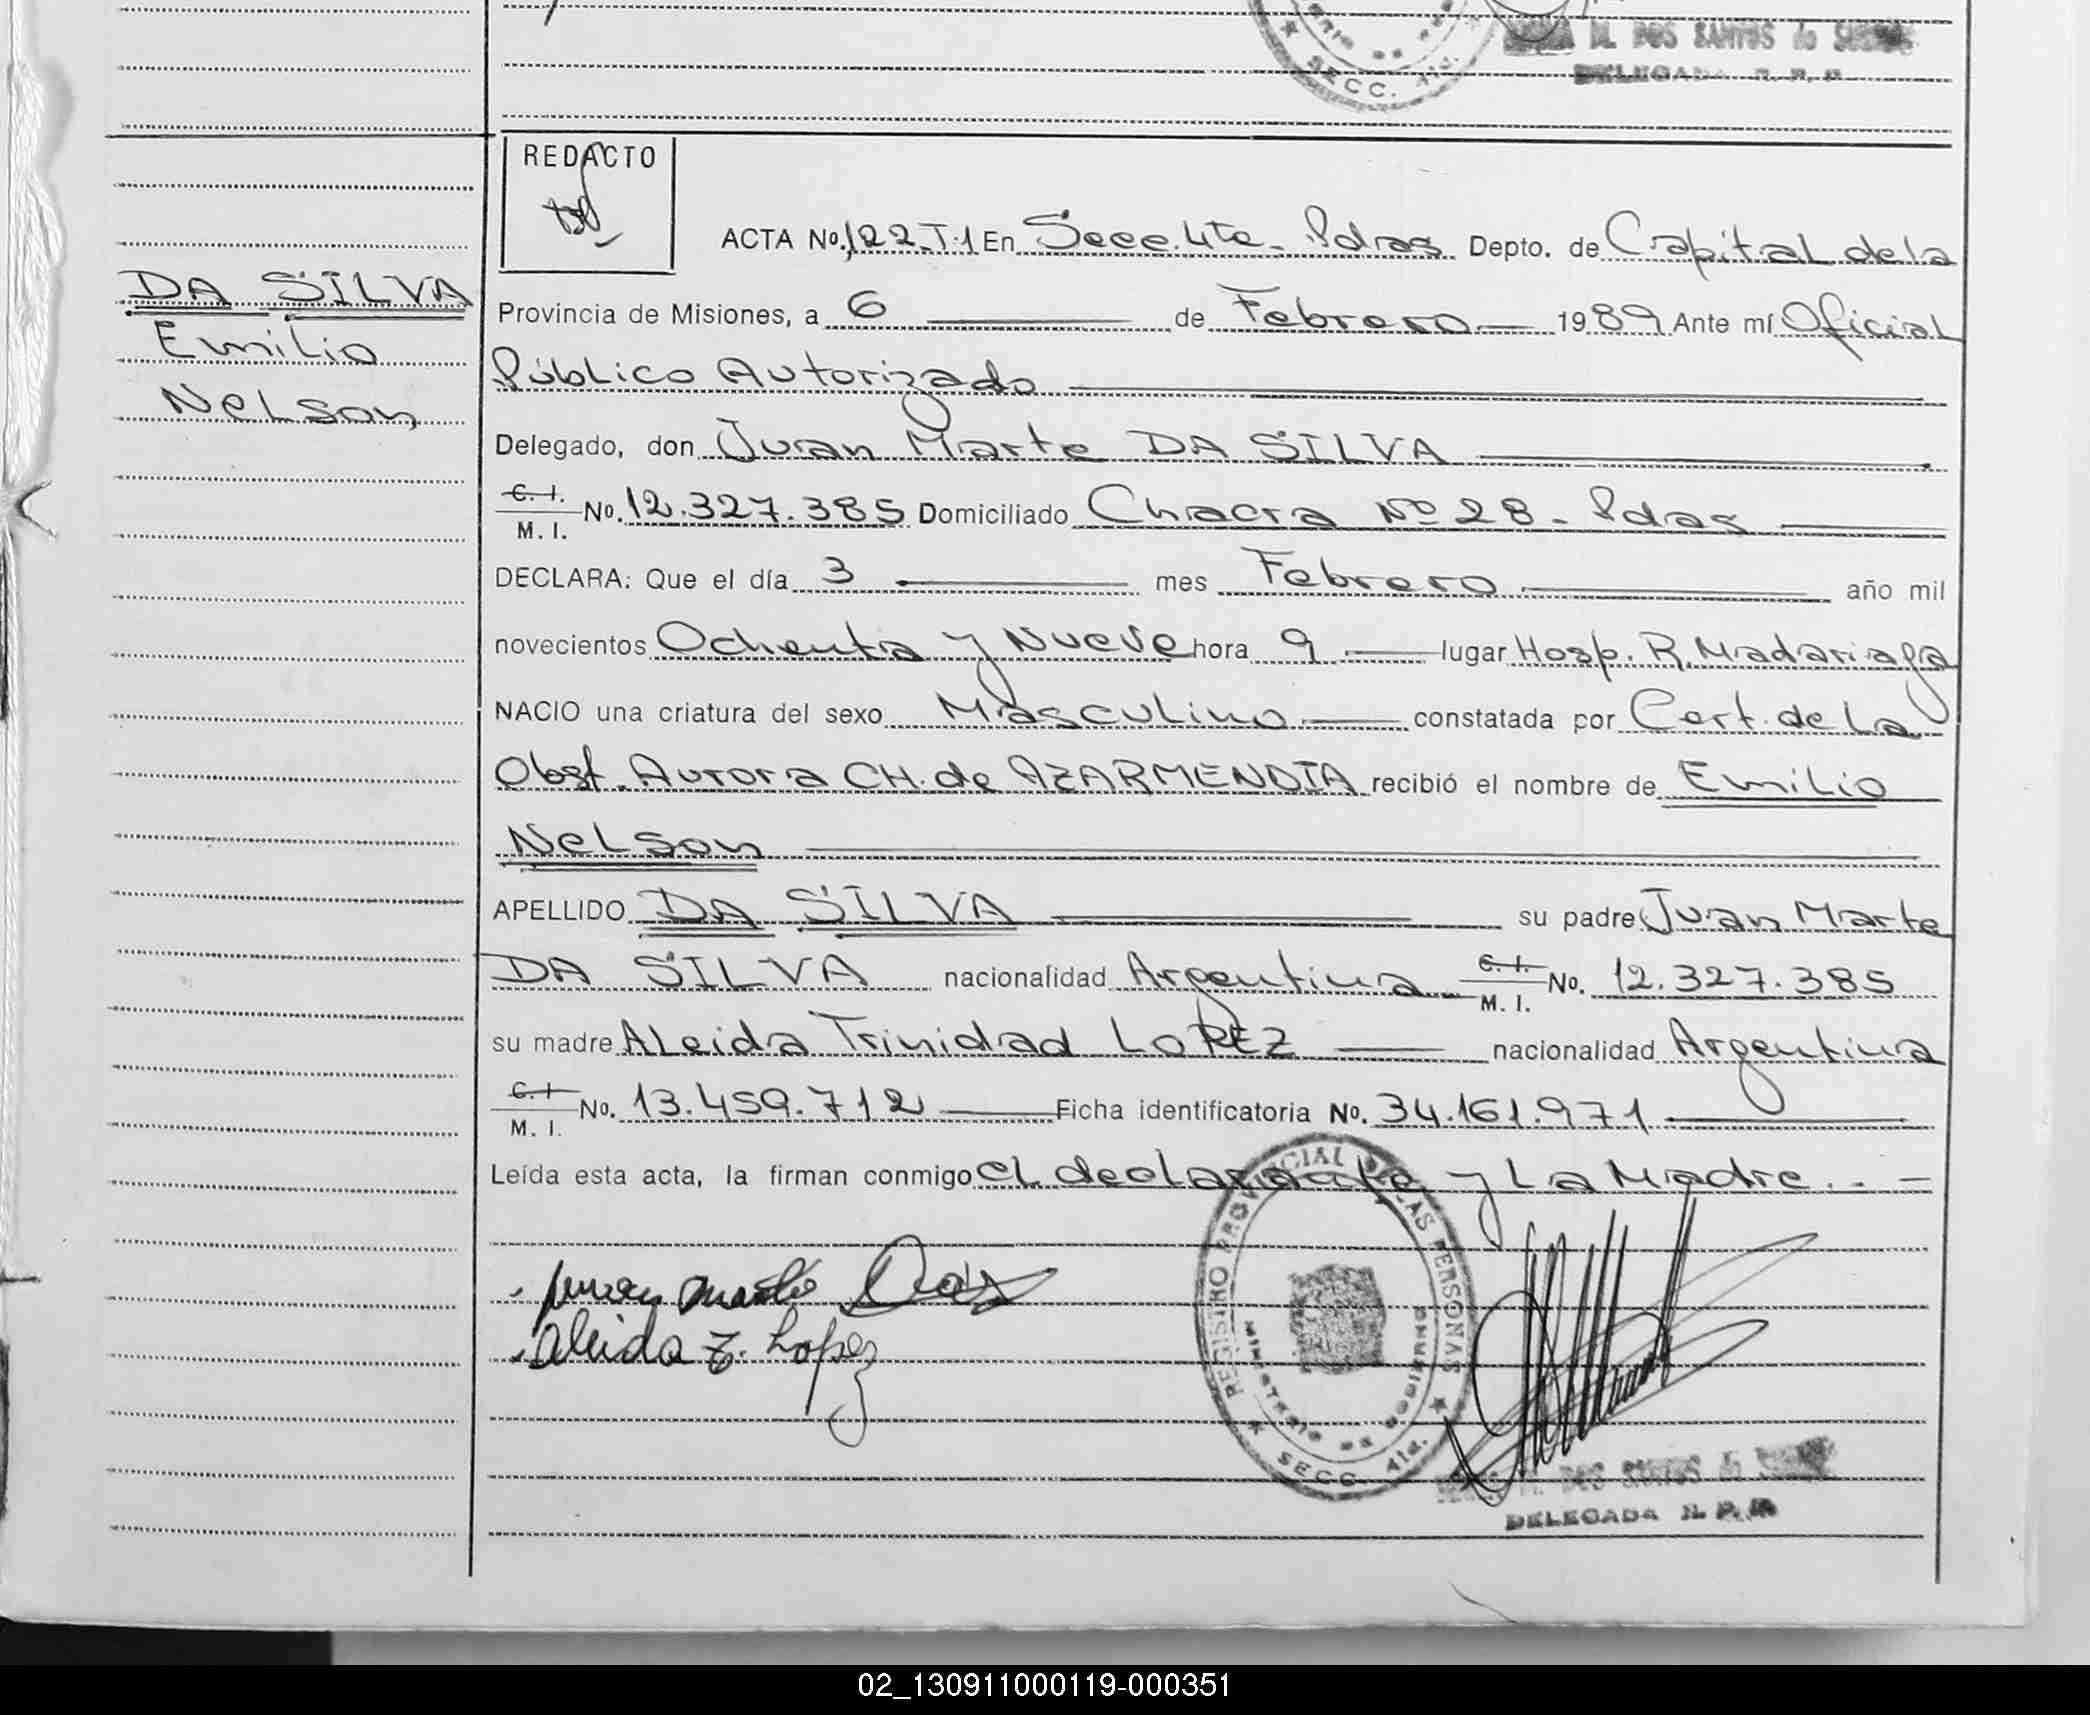 DOS SANTOS de
DELEGADA R. P. P.
SECC. 4ta.
REDACTO
ACTA No. 122-T.1 En Secc. 4ta - Pdas Depto. de Capital de la
DA SILVA
Emilio
Nelson
Provincia de Misiones, a 6 de Febrero 1989 Ante mí Oficial
Público Autorizado
Delegado, don Juan Marte DA SILVA
C. I.
M. I. No. 12.327.385 Domiciliado Chacra Nº 28 - Pdas
DECLARA: Que el día 3 mes Febrero año mil
novecientos Ochenta y Nueve hora 9 lugar Hosp. R. Madariaga
NACIO una criatura del sexo Masculino constatada por Cert. de La
Obst. Aurora CH. de AZARMENDIA recibió el nombre de Emilio
Nelson
APELLIDO DA SILVA su padre Juan Marte
DA SILVA nacionalidad Argentina C. I. M. I. No. 12.327.385
su madre ALeida Trinidad LOPEZ nacionalidad Argentina
C. I. M. I. No. 13.459.712 Ficha identificatoria No. 34.161.971
Leída esta acta, la firman conmigo el declarante y La Madre . . -
Juan Marte
Aleida T. Lopez
REGISTRO PROVINCIAL DE LAS PERSONAS
MINISTERIO DE GOBIERNO
SECC. 4ta.
DOS SANTOS de
DELEGADA R. P. P.
02_130911000119-000351